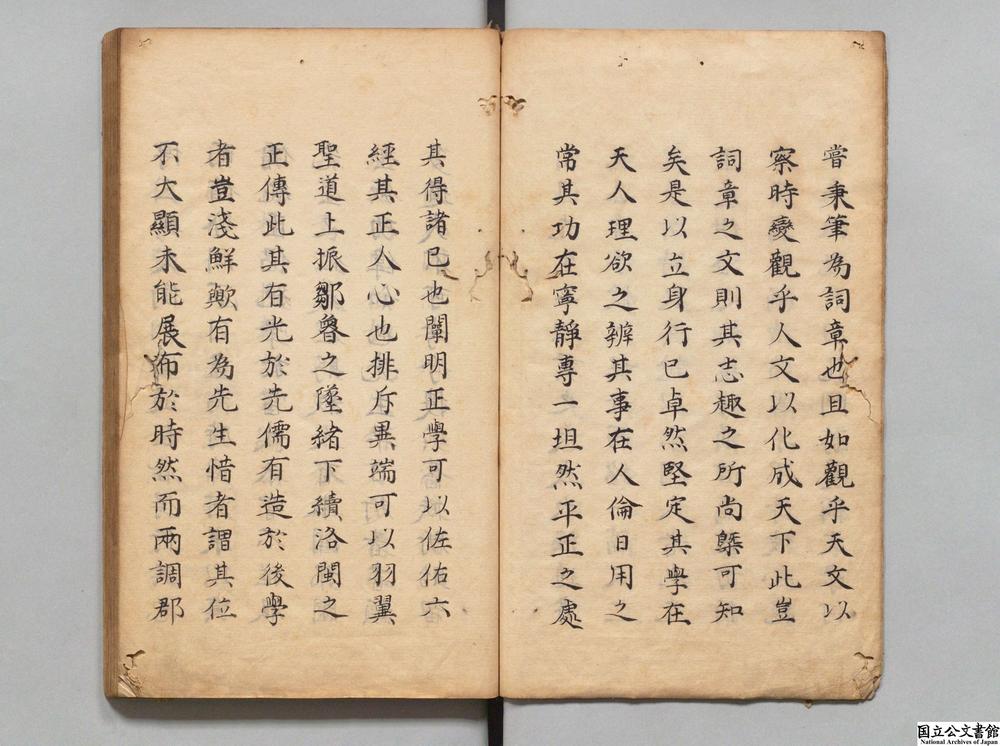 嘗秉筆為詞章也且如觀乎天文以
察時變觀乎人文以化成天下此豈
詞章之文則其志趣之所尚槩可知
矣是以立身行已卓然堅定其學在
天人理欲之辨其事在人倫日用之
常其功在寧靜專一坦然平正之處
其得諸已也闡明正學可以佐佑六
經其正人心也排斥異端可以羽翼
聖道上振鄒魯之墜緒下續洛閩之
正傳此其有光於先儒有造於後學
者豈淺鮮歟有為先生惜者謂其位
不大顯未能展布於時然而兩調郡
国立公文書館
National Archives of Japan